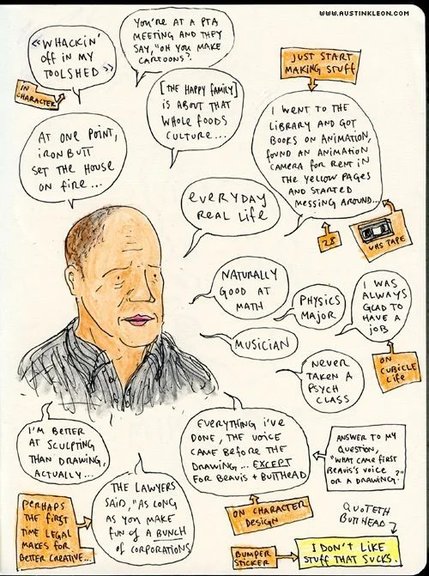 WWW.AUSTINKLEON.COM
"WHACKIN'
OFF IN MY
TOOLSHED"
IN
CHARACTER
YOU'RE AT A PTA
MEETING AND THEY
SAY, "OH YOU MAKE
CARTOONS?"
[THE HAPPY FAMILY]
IS ABOUT THAT
WHOLE FOODS
CULTURE...
JUST START
MAKING STUFF
I WENT TO THE
LIBRARY AND GOT
BOOKS ON ANIMATION,
FOUND AN ANIMATION
CAMERA FOR RENT IN
THE YELLOW PAGES
AND STARTED
MESSING AROUND...
28
VHS TAPE
AT ONE POINT,
IRON BUTT
SET THE HOUSE
ON FIRE...
EVERYDAY
REAL LIFE
NATURALLY
GOOD AT
MATH
PHYSICS
MAJOR
I WAS
ALWAYS
GLAD TO
HAVE A
JOB
ON
CUBICLE
LIFE
MUSICIAN
NEVER
TAKEN A
PSYCH
CLASS
I'M BETTER
AT SCULPTING
THAN DRAWING,
ACTUALLY...
EVERYTHING I'VE
DONE, THE VOICE
CAME BEFORE THE
DRAWING... EXCEPT
FOR BEAVIS + BUTTHEAD
ANSWER TO MY
QUESTION,
"WHAT CAME FIRST
BEAVIS'S VOICE
OR A DRAWING?"
ON CHARACTER
DESIGN
PERHAPS
THE FIRST
TIME LEGAL
MAKES FOR
BETTER CREATIVE...
THE LAWYERS
SAID, "AS LONG
AS YOU MAKE
FUN OF A BUNCH
OF CORPORATIONS
QUOTETH
BUTTHEAD
BUMPER
STICKER
I DON'T LIKE
STUFF THAT SUCKS.